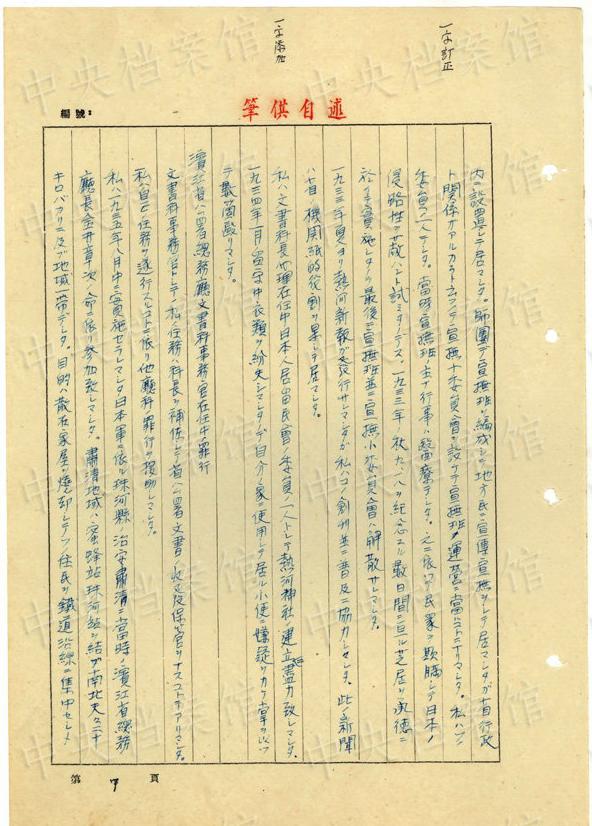 一字訂正
一字添加
述自供筆
編號:
内ニ設置シテ居マシタ。師團デ宣撫班ヲ編成シテ地方民ニ宣傳宣撫ヲシテ居マシタガ省行政
ト関係ガアルカラトテ宣撫小委員會ヲ設ケテ宣撫班ノ運営ニ當ルコトニナリマシタ。私ハソノ
委員ノ一人デシタ。當時宣撫班ノ主ナ行事ハ映画デシタ。之ニ依リ民衆ヲ欺瞞シテ日本ノ
侵略性ヲ蔵ハント試ミタノデス。一九三三年ノ秋九・一八ヲ紀念スル数日間ニ亘ル芝居ヲ承徳ニ
於テ実施シタノヲ最後ニ宣撫班並ニ宣撫小委員會ハ解散サレマシタ。
一九三三年夏ヨリ熱河新報ガ発行サレマシタガ私ハコノ創刊並ニ普及ニ協力シマシタ。此ノ新聞
ハ省ノ機関紙的役割ヲ果シテ居マシタ。
私ハ文書科長代理在任中日本人居留民會ノ委員ノ一人トシテ熱河神社ノ建立ニ盡力致シマシタ。
一九三四年一月留守中衣類ヲ紛失シマシタノデ自分ノ家ニ使用シテ居ル小使ニ嫌疑ヲカケ掌ヲ以ツ
テ数箇殴リマシタ。
濱江省公署総務廳文書科事務官在任中ノ罪行
文書科事務官トシテノ私ノ任務ハ科長ヲ補佐シテ省公署文書ノ收発及保管ヲナスコトデアリマシタ。
私ハ自己ノ任務ヲ遂行スルコトニ依リ他廳科ノ罪行ヲ援助シマシタ。
私ハ一九三五年八月中ニ実施セラレマシタ日本軍ニ依ル珠河縣ノ治安肅清ニ當時ノ濱江省総務
廳長金井章次ノ命ニ依リ参加致シマシタ。肅清地域ハ蜜蜂站珠河站ヲ結ブ南北夫々二十
キロバカリニ及ブ地域一帯デシタ。目的ハ散在家屋ヲ燒却シテソノ住民ヲ鐵道沿線ニ集中セシメ
第 7 頁